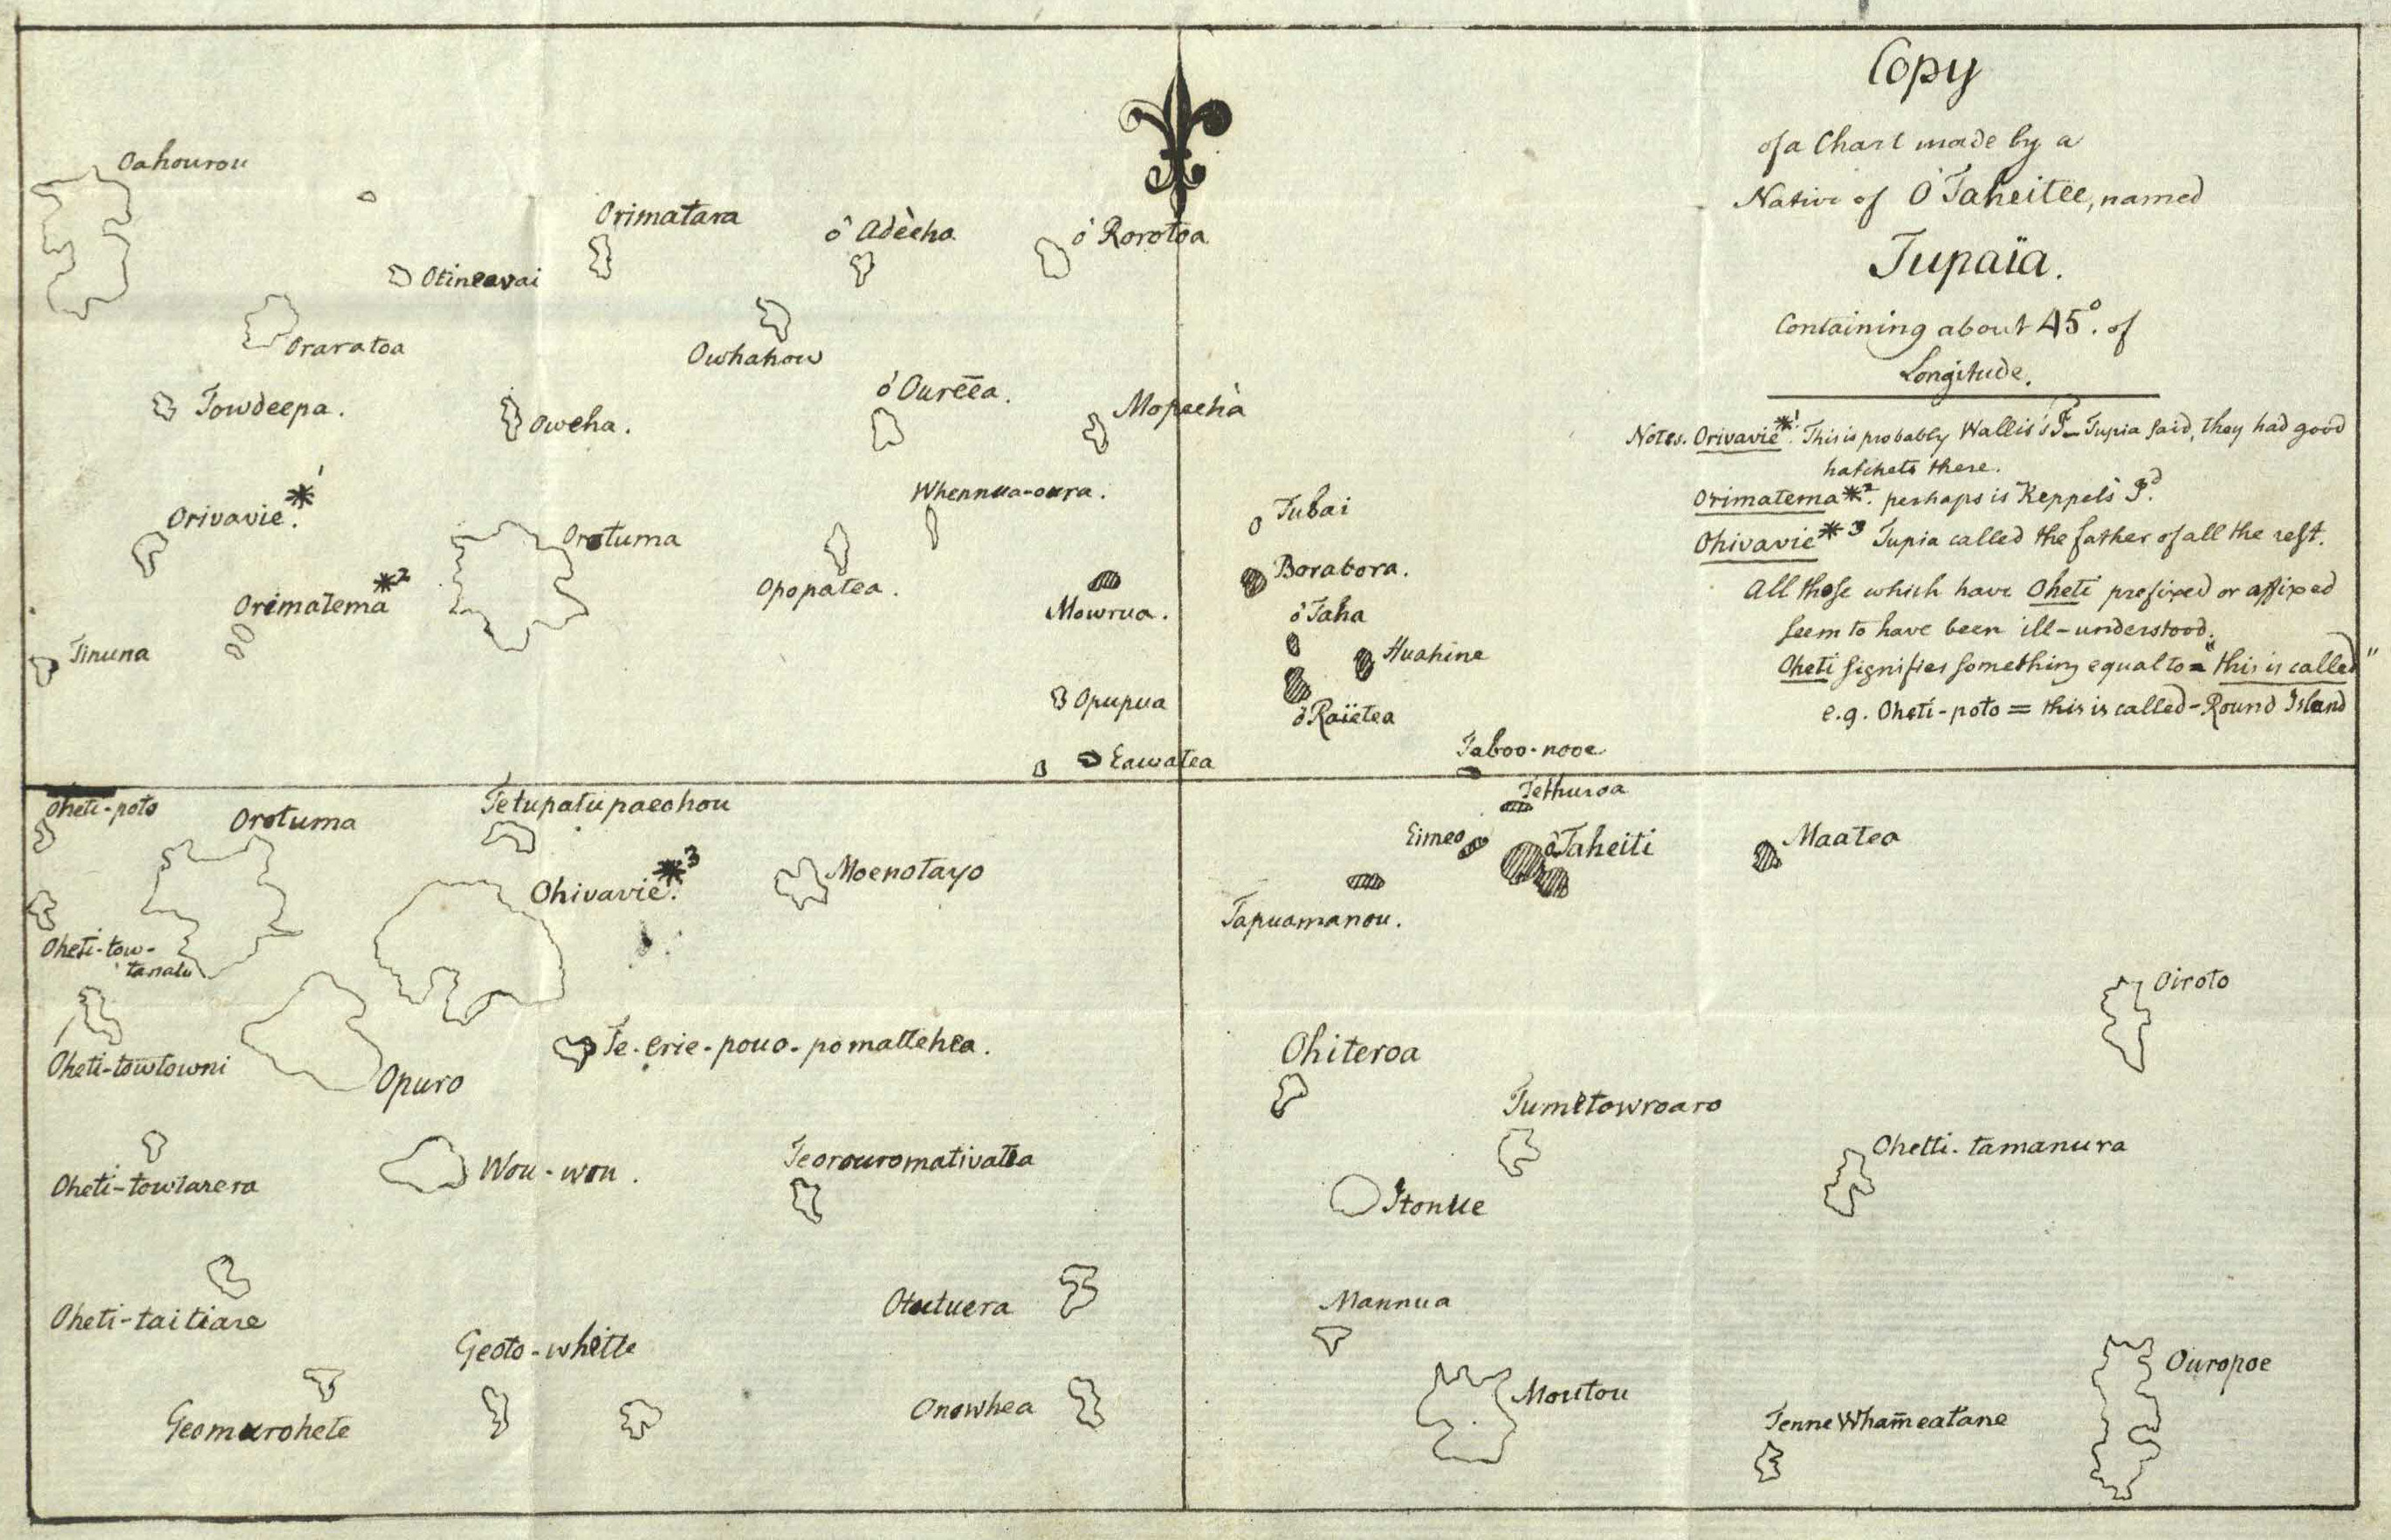 Copy
of a Chart made by a
Native of O'Taheitee, named
Tupaïa.
Containing about 45°. of
Longitude.
Notes. Orivavie*1. This is probably Wallis's I– Tupia said, they had good
hatchets there.
Orimatema*2. perhaps is Keppel's I.d
Ohivavie*3 Tupia called the father of all the rest.
All those which have Oheti prefixed or affixed
seem to have been ill-understood.
Oheti signifies something equal to = "this is called"
e.g. Oheti-poto = this is called - Round Island
Oahourou
Orimatara
ò Adèeha
ó Rorotoa
Otineavai
Oraratoa
Owhahou
Towdeepa.
Oweha.
ó Oureea.
Mopeeha
Orivavie. *1
Whennua-oura.
Orotuma
Tubai
Orematema *2
Opopatea.
Mowrua.
Borabora.
ó Taha
Tinuna
Huahine
Opupua
ó Raïetea
Eawatea
Taboo-nooe
Oheti-poto
Orotuma
Tetupatupaeohou
Tethuroa
Eimeo
ò Taheiti
Maatea
Ohivavie. *3
Moenotayo
Tapuamanou.
Oheti-tow-
tanatu
Oiroto
Oheti-towtowni
Opuro
Te-erie-pouo-pomattehea.
Ohiteroa
Tumetowroaro
Oheti-towtarera
Wou-wou.
Teorouromativatea
Ohetti-tamanura
Itonue
Oheti-taitiare
Otutuera
Mannua
Geoto-white
Ouropoe
Geomurohete
Onowhea
Moutou
Tenne Whameatane